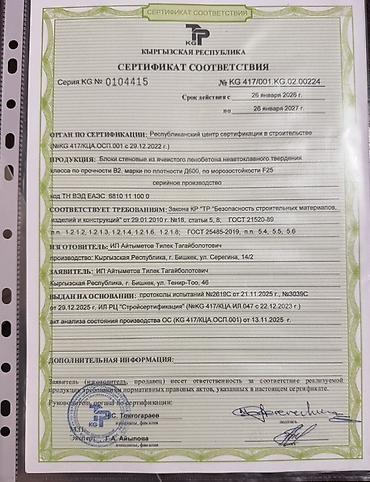 СЕРТИФИКАТ СООТВЕТСТВИЯ
KG
КЫРГЫЗСКАЯ РЕСПУБЛИКА
СЕРТИФИКАТ СООТВЕТСТВИЯ
Серия KG № 0104415 № KG 417/001.KG.02.00224
Срок действия с 26 января 2026 г.
по 26 января 2027 г.
ОРГАН ПО СЕРТИФИКАЦИИ: Республиканский центр сертификации в строительстве
(№KG 417/КЦА.ОСП.001 с 29.12.2022 г.)
ПРОДУКЦИЯ: Блоки стеновые из ячеистого пенобетона неавтоклавного твердения
класса по прочности В2, марки по плотности Д600, по морозостойкости F25
серийное производство
код ТН ВЭД ЕАЭС 6810 11 100 0
СООТВЕТСТВУЕТ ТРЕБОВАНИЯМ: Закона КР "ТР "Безопасность строительных материалов,
изделий и конструкций" от 29.01.2010 г. №18, статьи 5, 8; ГОСТ 21520-89
п.п. 1.2.1.2, 1.2.1.3, 1.2.1.4, 1.2.1.6, 1.2.1.8; ГОСТ 25485-2019, п.п. 5.4, 5.5, 5.6
ИЗГОТОВИТЕЛЬ: ИП Айтыметов Тилек Тагайболотович
производство: Кыргызская Республика, г. Бишкек, ул. Серегина, 14/2
ЗАЯВИТЕЛЬ: ИП Айтыметов Тилек Тагайболотович
Кыргызская Республика, г. Бишкек, ул. Тенир-Тоо, 46
ВЫДАН НА ОСНОВАНИИ: протоколы испытаний №2619С от 21.11.2025 г., №3039С
от 29.12.2025 г. ИЛ РЦ "Стройсертификация" (№KG 417/КЦА.ИЛ.047 с 22.12.2023 г.)
акт анализа состояния производства ОС (KG 417/КЦА.ОСП.001) от 13.11.2025 г.
ДОПОЛНИТЕЛЬНАЯ ИНФОРМАЦИЯ:
Заявитель (изготовитель, продавец) несет ответственность за соответствие реализуемой
продукции требованиям нормативных правовых актов, указанных в настоящем сертификате.
Руководитель органа по сертификации:
С. Токтогараев
подпись
М.П.
Эксперт Г.А. Айылова